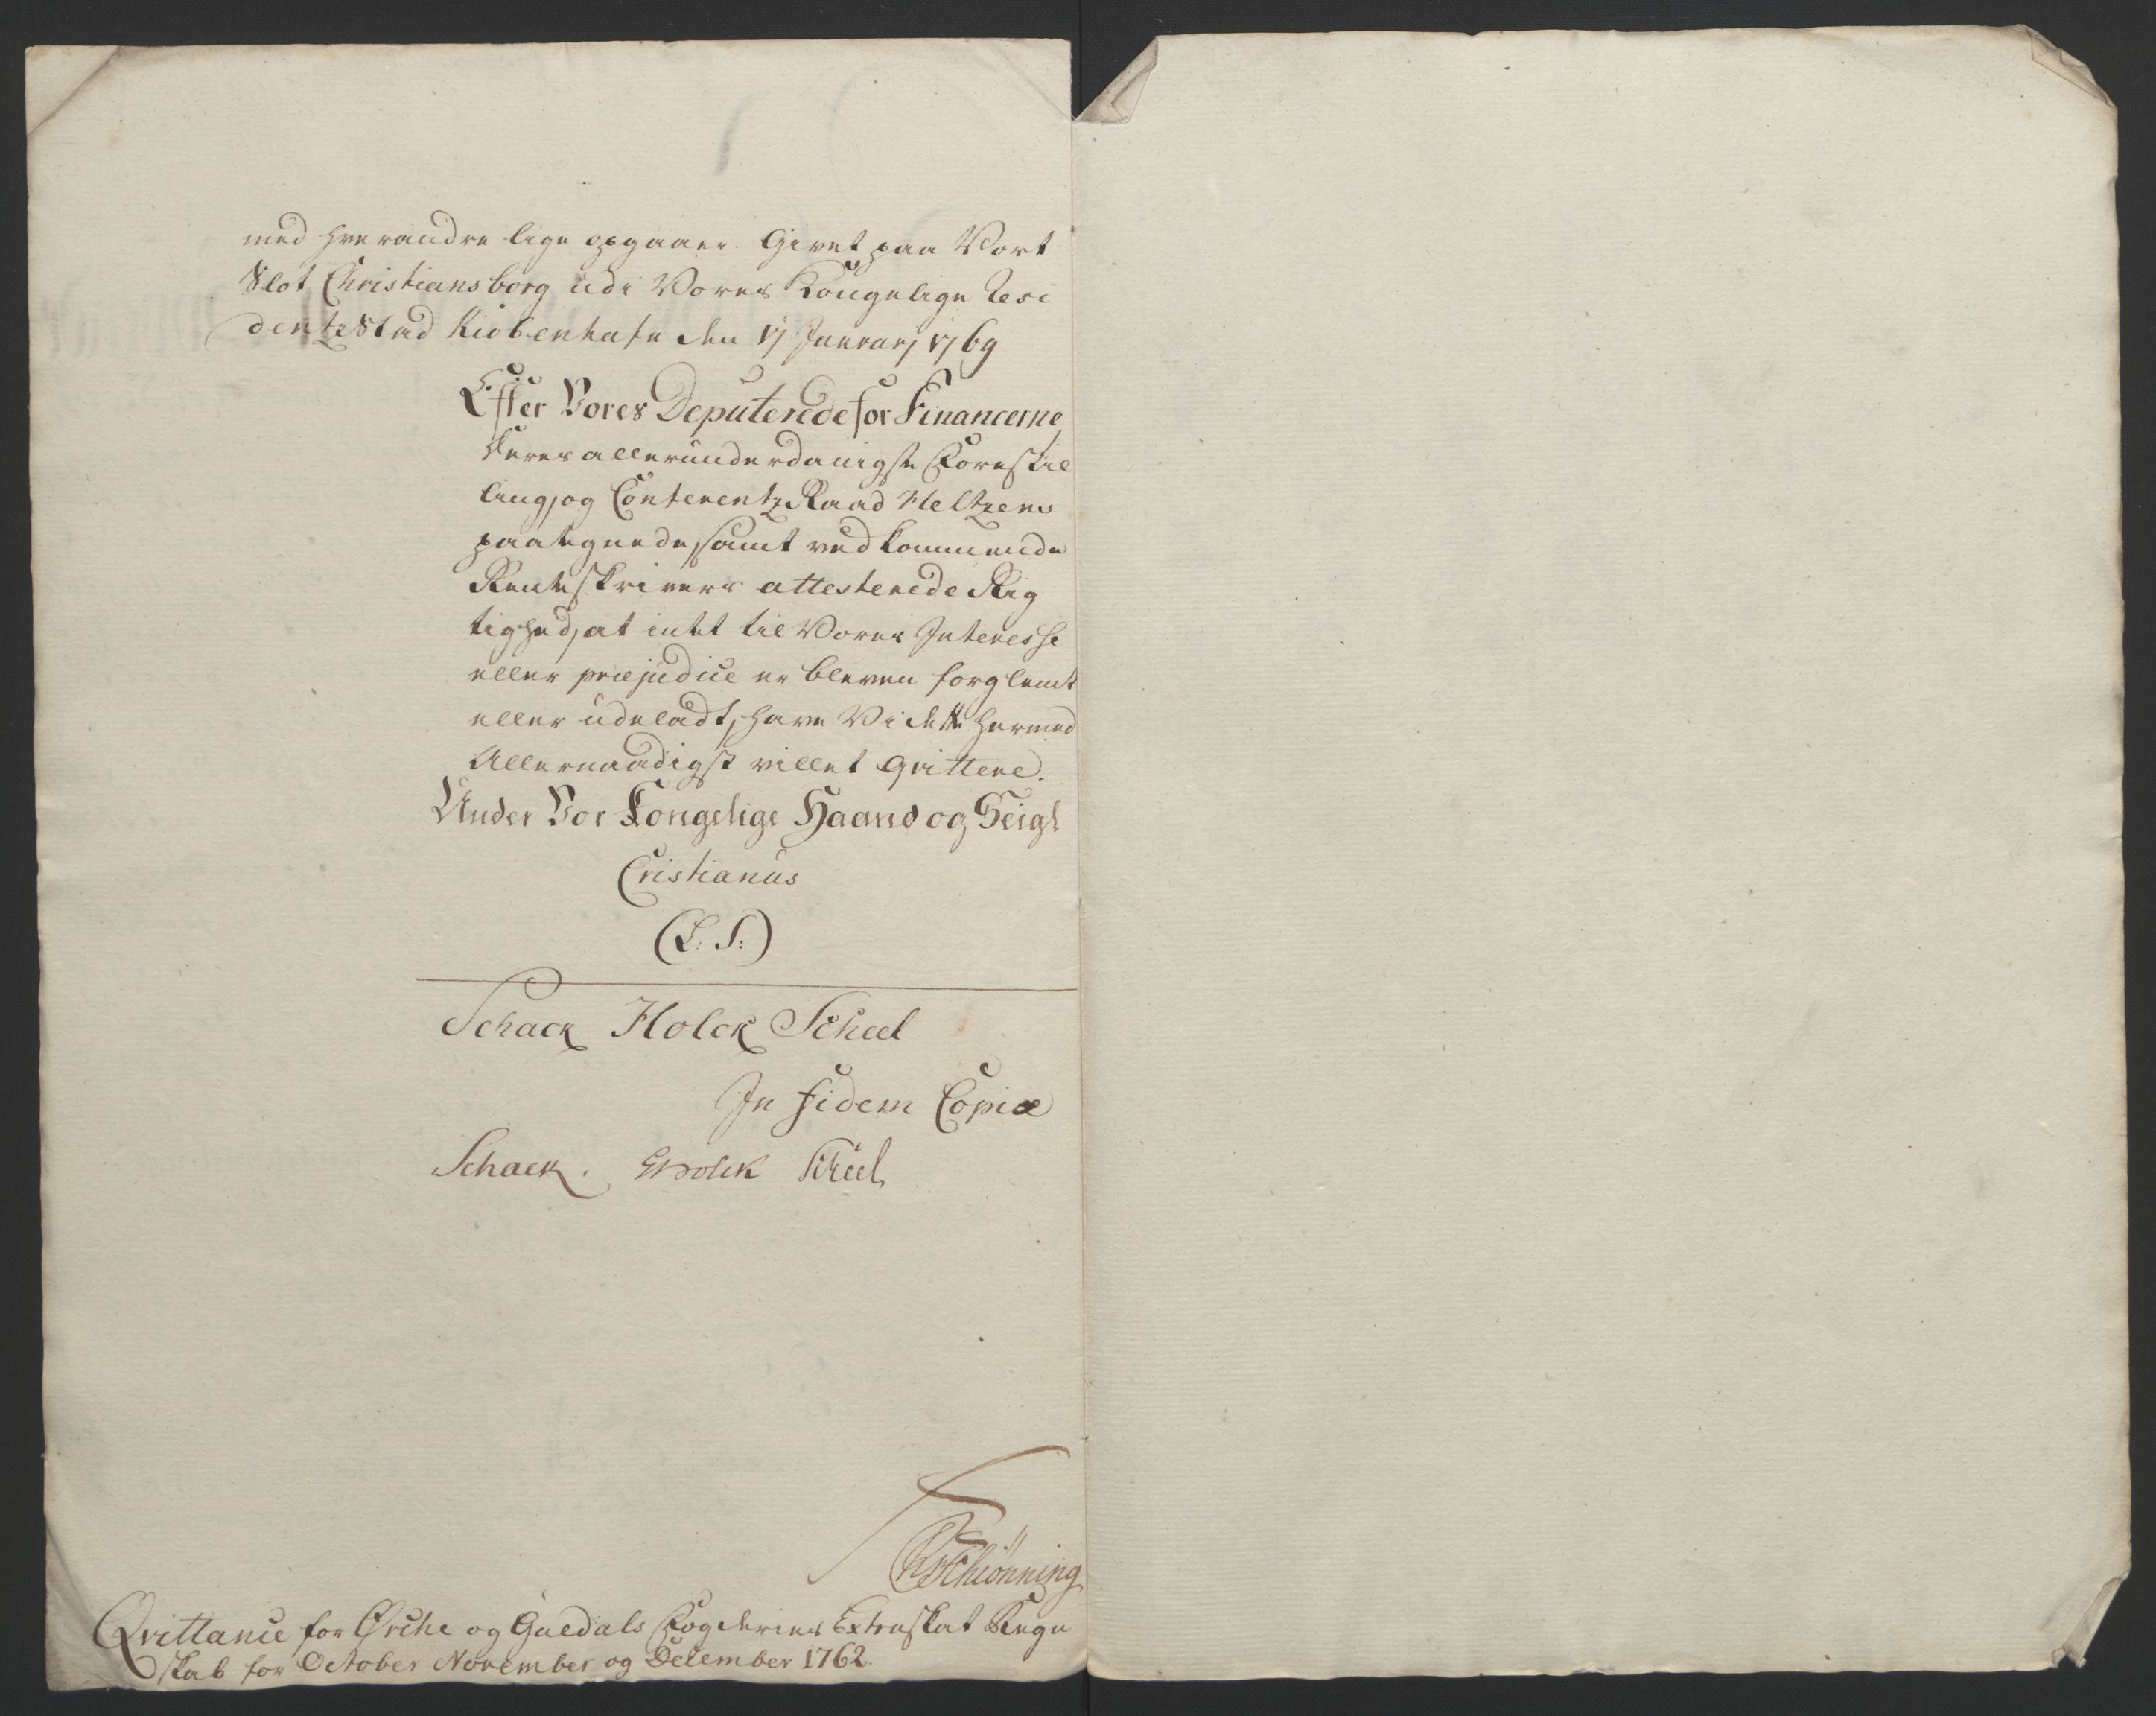 med hverandre lige opgaaer. Givet paa Vort
Slot Christiansborg udi Vores Kongelige Resi
dentz Stad Kiøbenhafn den 17 Januarj 1769
Efter Vores Deputerede for Financerne
deres allerunderdanigste Forestil
ling, og Conferentz Raad Heltzens
paategnede, samt vedkommende
Renteskrivers attesterede Rig
tighed, at intet til Vores Interesse
eller præjudice er bleven forglemt
eller udeladt, have Vi dette hermed
Allernaadigst villet qvittere.
Under Vor Kongelige Haand og Seigl
Cristianus
(L. S:)
Schack Holck Scheel
In fidem Copiæ
Schack. Holck Scheel
Schiønning
Qvittance for Ørche og Guedals Fogderies Extraskat Regn
skab for October November og December 1762.